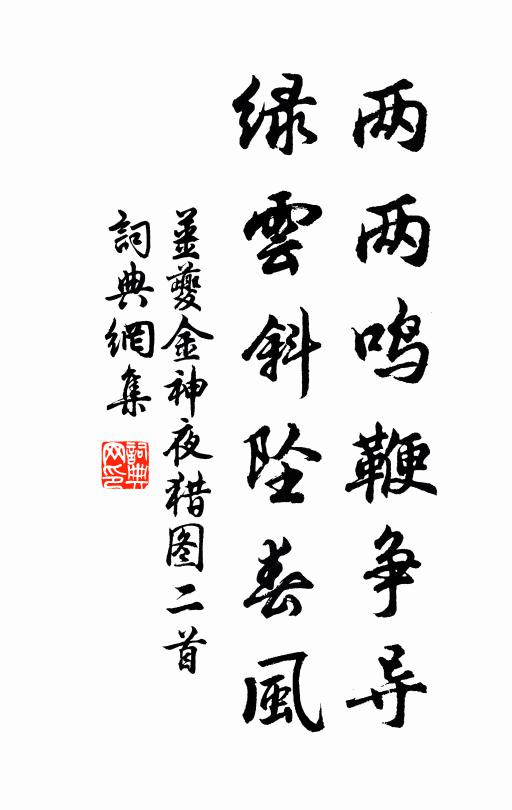 两两鸣鞭争导
绿雲斜坠春風
姜夔金神夜猎图二首
詞典網集
詞典网印